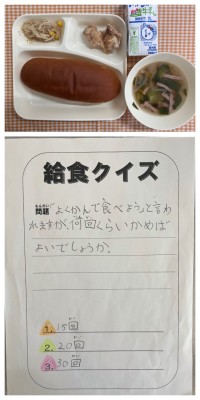 給食クイズ
問題 よくかんで食べようと言わ
れますが、何回くらいかめば
よいでしょうか。
1. 15回
2. 20回
3. 30回